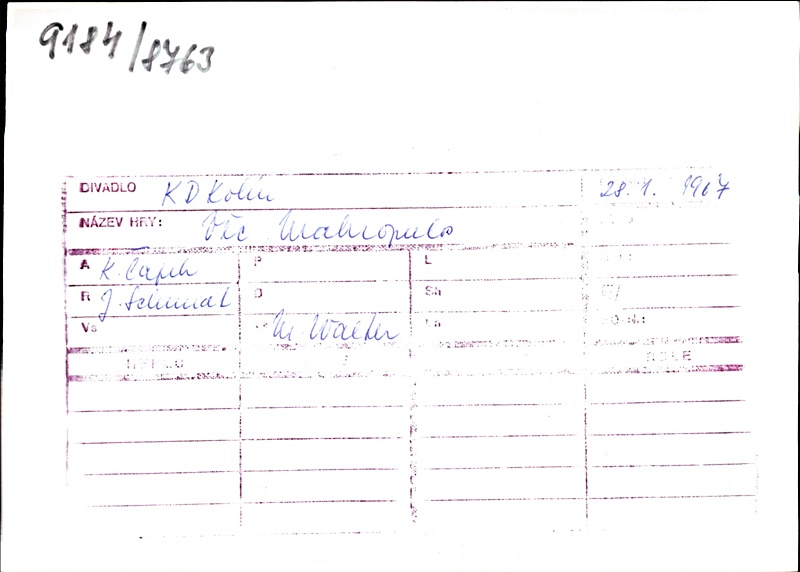 9184/8763
DIVADLO KD Kolín 28. 1. 1967
NÁZEV HRY: Věc Makropulos
A K. Čapek P L
R J. Schmidt D Sh
Vs M. Walter
ROLE